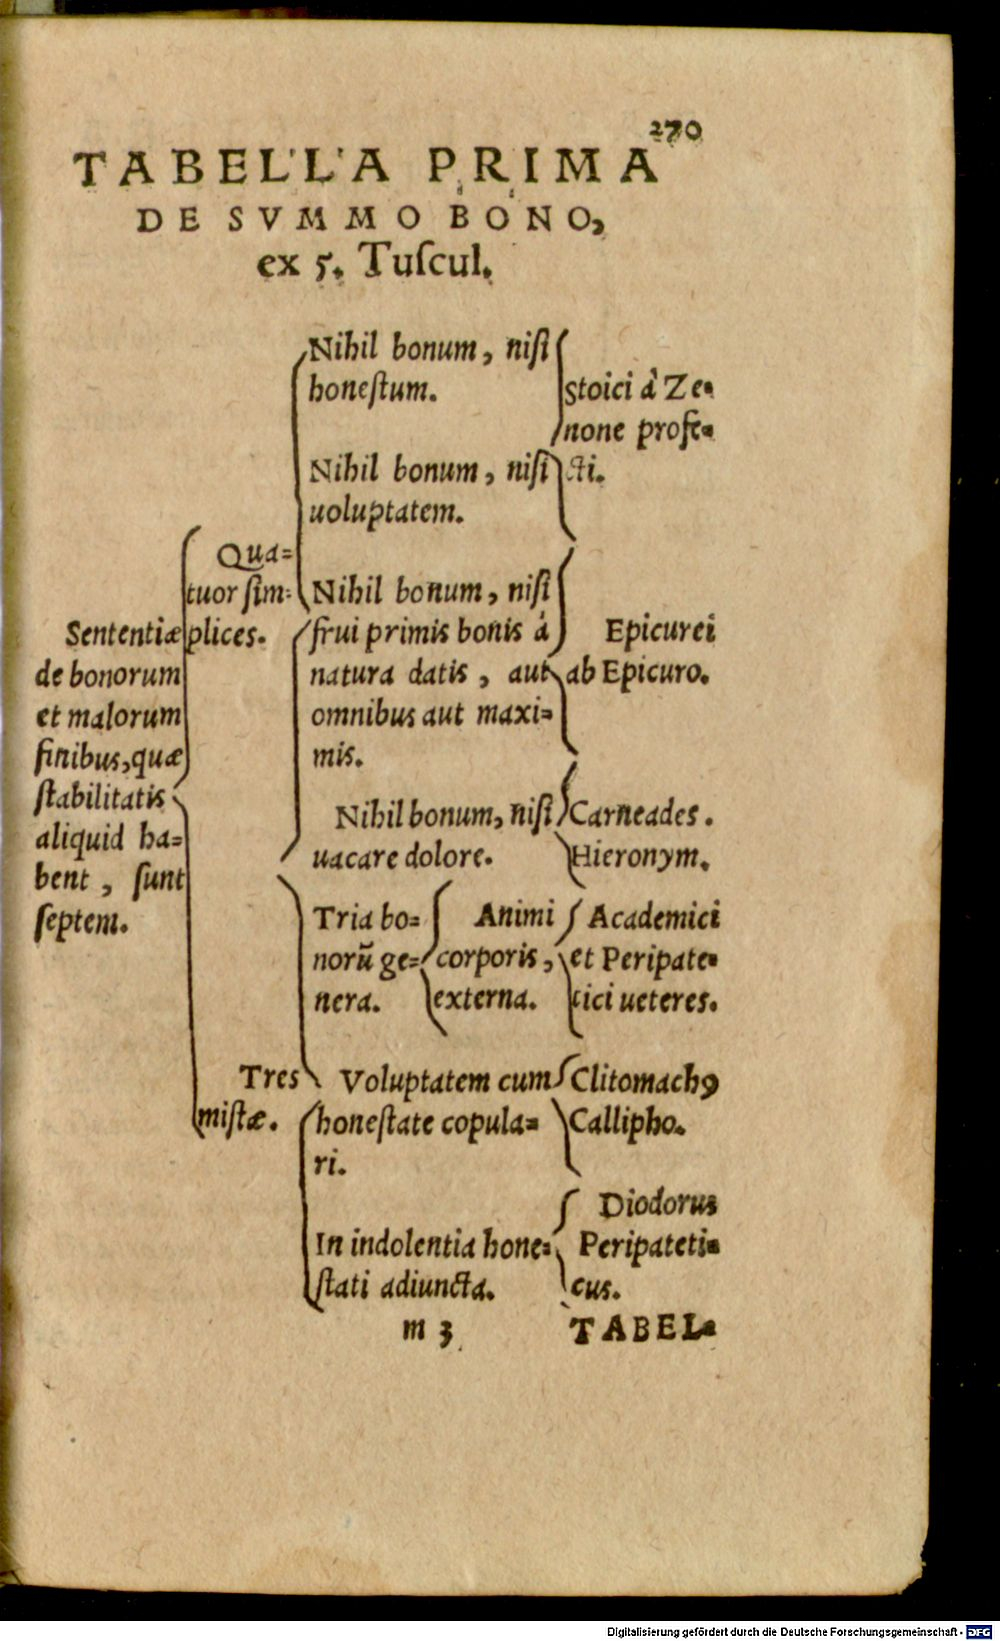 270
TABELLA PRIMA
DE SVMMO BONO,
ex 5. Tuſcul.
Sententiæ
de bonorum
et malorum
finibus, quæ
ſtabilitatis
aliquid ha=
bent, ſunt
ſeptem.
Qua=
tuor ſim=
plices.
Nihil bonum, niſi
honeſtum.
Stoici à Ze=
none profe=
cti.
Nihil bonum, niſi
uoluptatem.
Nihil bonum, niſi
frui primis bonis à
natura datis, aut
omnibus aut maxi=
mis.
Epicurei
ab Epicuro.
Nihil bonum, niſi
uacare dolore.
Carneades.
Hieronym.
Tres
miſtæ.
Tria bo=
norũ ge=
nera.
Animi
corporis,
externa.
Academici
et Peripate=
tici ueteres.
Voluptatem cum
honeſtate copula=
ri.
Clitomachꝯ
Callipho.
In indolentia hone=
ſtati adiuncta.
Diodorus
Peripateti=
cus.
m 3
TABEL=
Digitalisierung gefördert durch die Deutsche Forschungsgemeinschaft - DFG